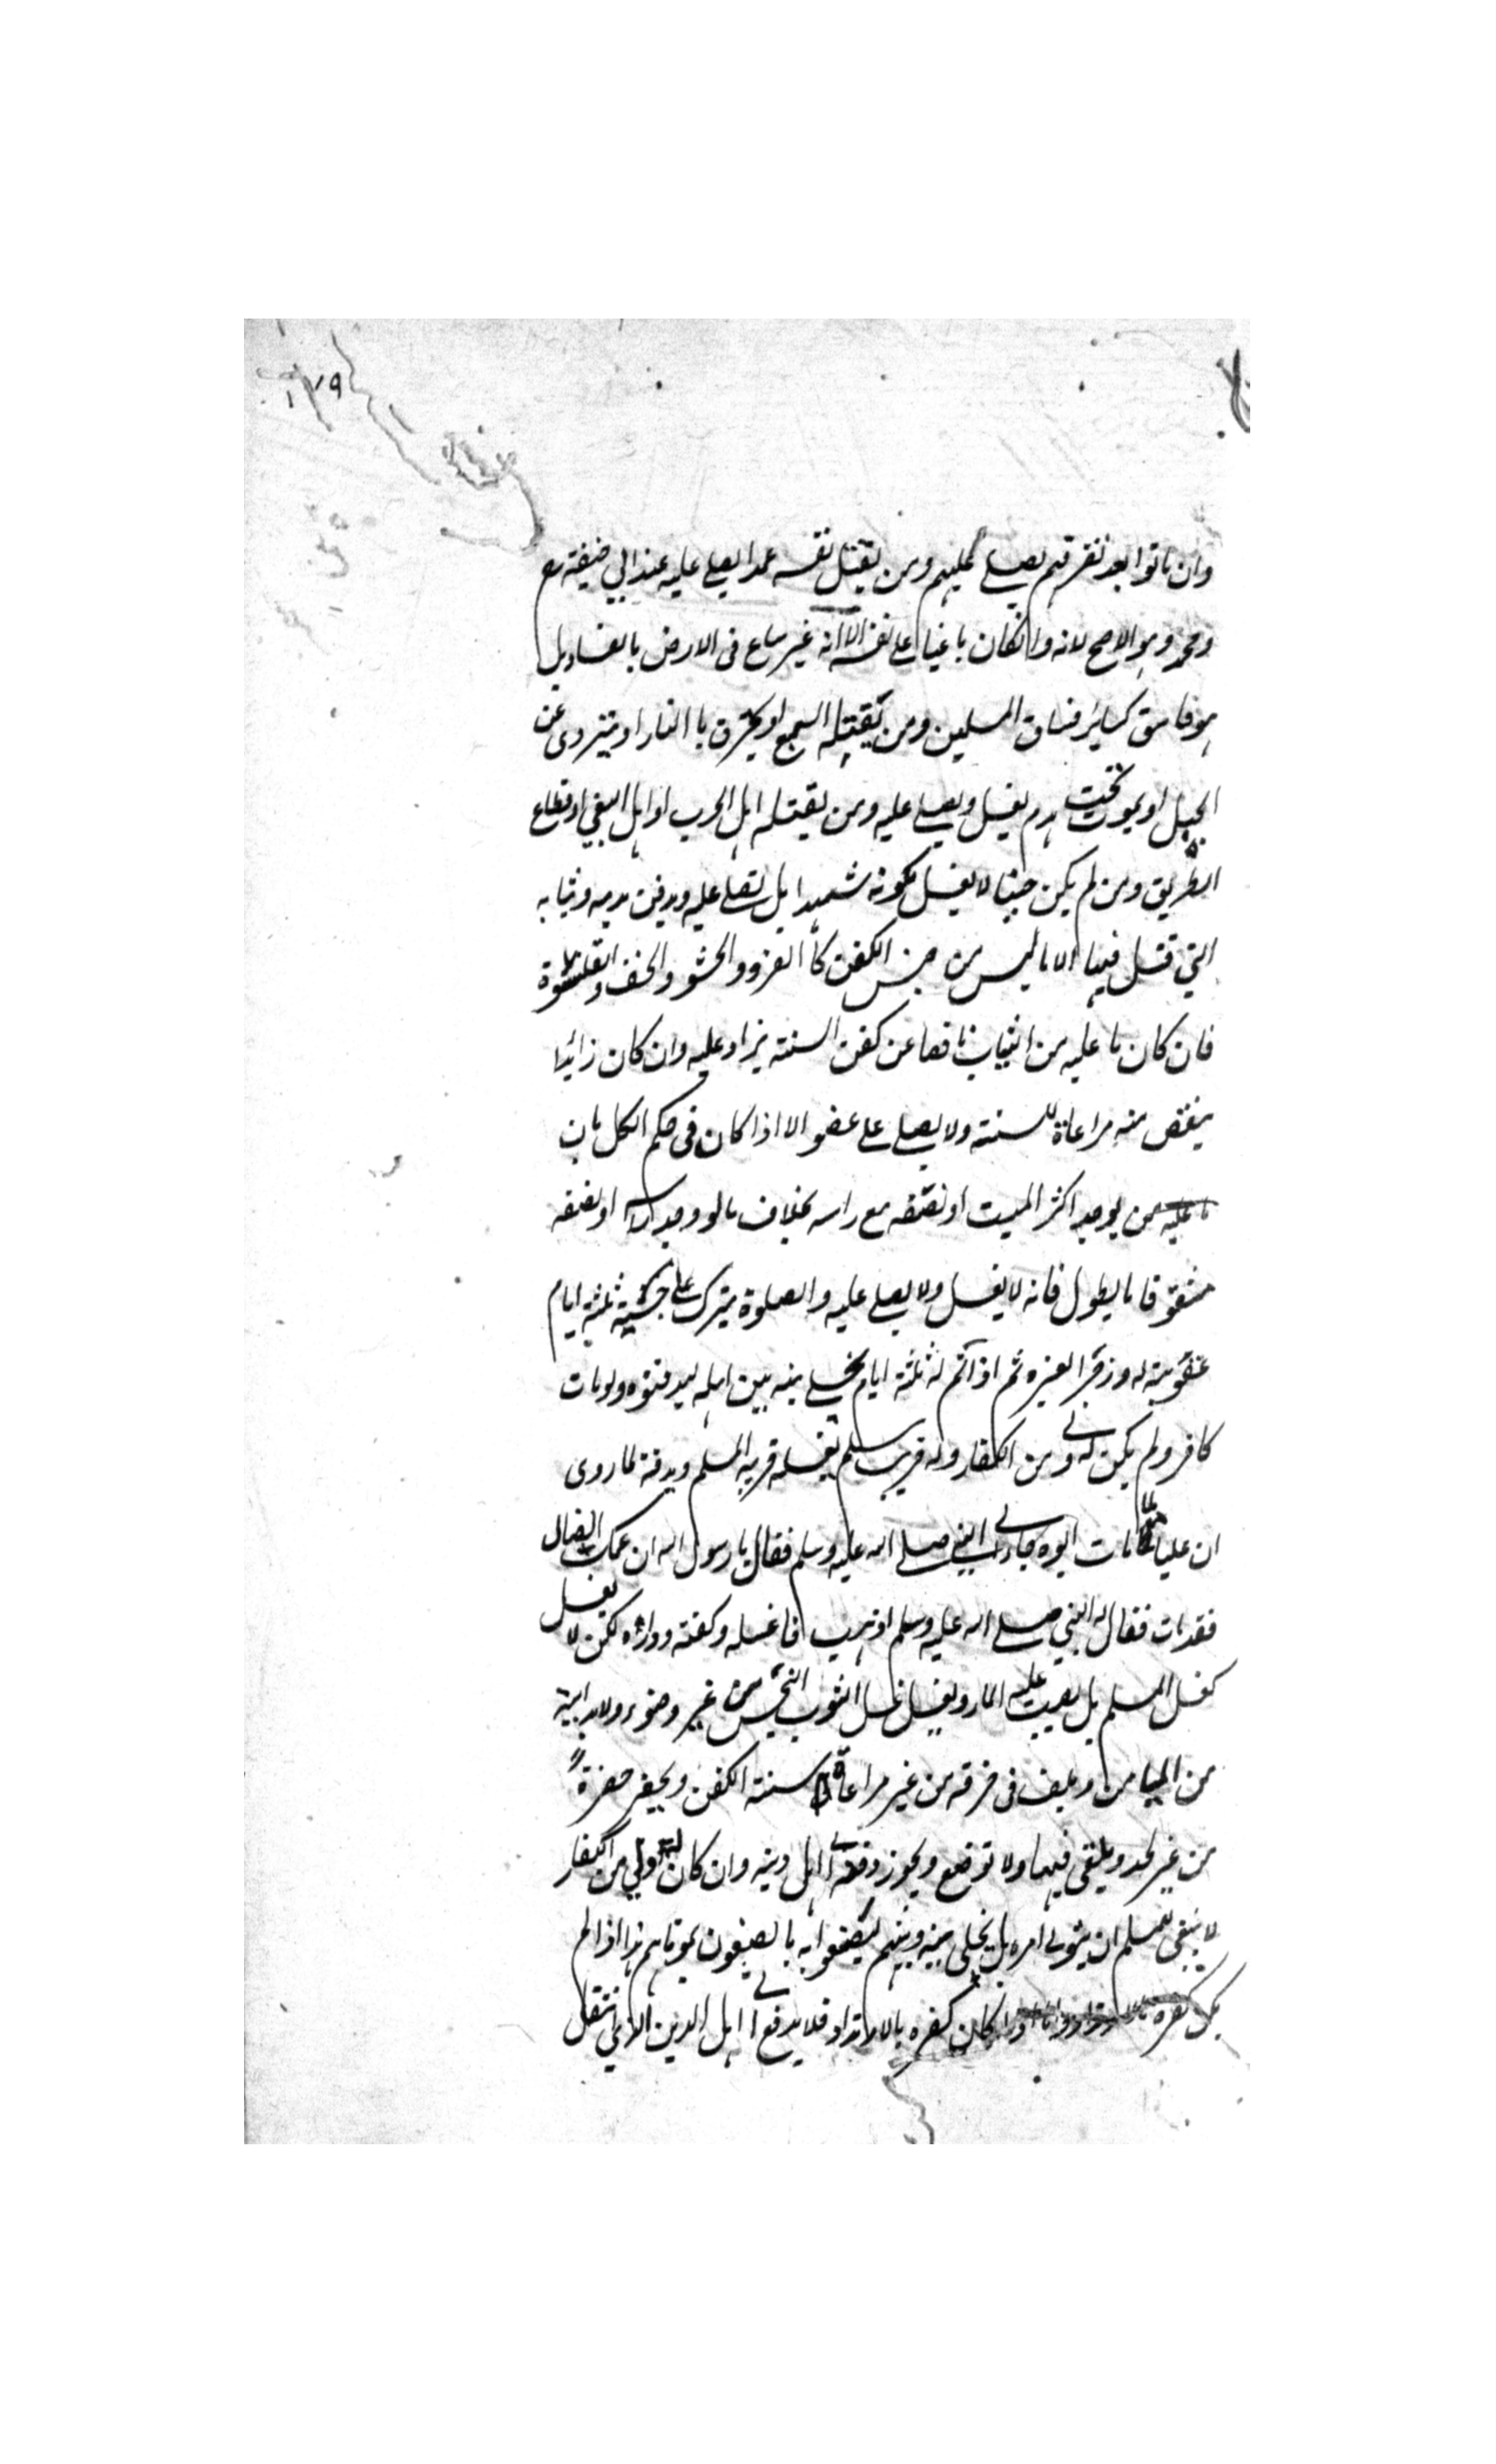 ١٧٩
وان ماتوا بعد تفرقهم يصلي عليهم ومن يقتل نفسه عمدا يصلي عليه عند ابي حنيفة رح
ومحمد وهو الاصح لانه وانكان باغيا على نفسه الا انه غير ساع فى الارض بالفساد بل
هو فاسق كسائر فساق المسلمين ومن يقتله السبع او يحترق با النار او يتردى عن
الجبل او يموت تحت هدم يغسل ويصلى عليه ومن يقتله اهل الحرب او اهل البغي او قطاع
الطريق ومن لم يكن جنبا لا يغسل لكونه شهيدا بل يصلى عليه ويدفن بدمه وثيابه
التي قتل فيها الا ما ليس من جنس الكفن كا الفرو والحشو والخف والقلنسوة
فان كان ما عليه من الثياب ناقصا عن كفن السنته يزاد عليه وان كان زائدا
ينقص منه مراعاة للسنته ولا يصلى على عضو الا اذا كان فى حكم الكل بان
يوجد اكثر الميت او نصفه مع راسه بخلاف ما لو وجد راسه او نصفه
مشقوقا بالطول فانه لا يغسل ولا يصلى عليه والصلوة يترك على خشبته ثلثه ايام
عقوبة له وزجرا لغيره ثم اذا تم له ثلثة ايام يخلى بينه بين اهله ليدفنوه ولو مات
كافر ولم يكن له ولي من الكفار وله قريب مسلم يغسله قريبه المسلم ويدفنه لما روى
ان عليا لما مات ابوه جاء الى النبي صلى الله عليه وسلم فقال يا رسول الله ان عمك الضال
فقد مات فقال له النبي صلى الله عليه وسلم اذهب فاغسله وكفنه وواره لكن لا يغسل
كغسل المسلم بل يصب عليه الماء ويغسل غسل الثوب النجس من غير وضوء ولا بداية
من الميامن ويلف فى خرقه من غير مراعاة سنته الكفن ويحفر حفرة
من غير لحد ويلقى فيها ولا توضع ويجوز دفعه الى اهل دينه وان كان له ولي من الكفار
لا ينبغى للمسلم ان يتولى امره بل يخلى بينه وبينهم ليصنعوا به ما يصنعون بموتاهم هذا اذا لم
يكن كفره وانكان كفره بالارتداد فلا يدفع الى اهل الدين الذي انتقل